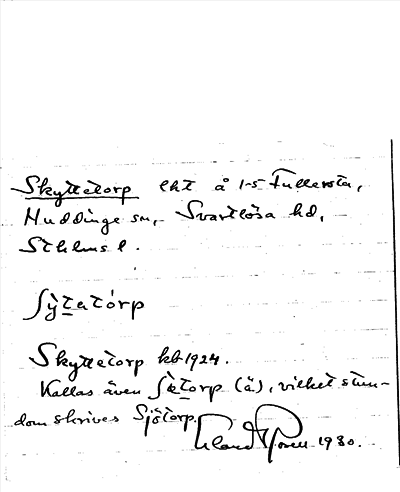 Skyttetorp lht å 1-5 Fullersta,
Huddinge sn, Svartlösa hd,
Sthlms l.
ʃỳtatórp
Skyttetorp kb 1924.
Kallas även ʃètorp (ä), vilket stun-
dom skrives Sjötorp.
1930.